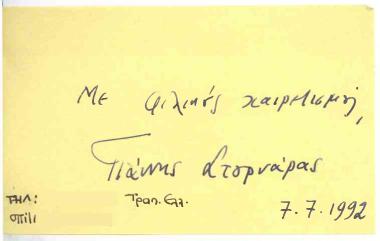 Με φιλικούς χαιρετισμούς,
Γιάννης Στουρνάρας
Τραπ. Ελ.
ΤΗΛ:
σπίτι
7.7.1992